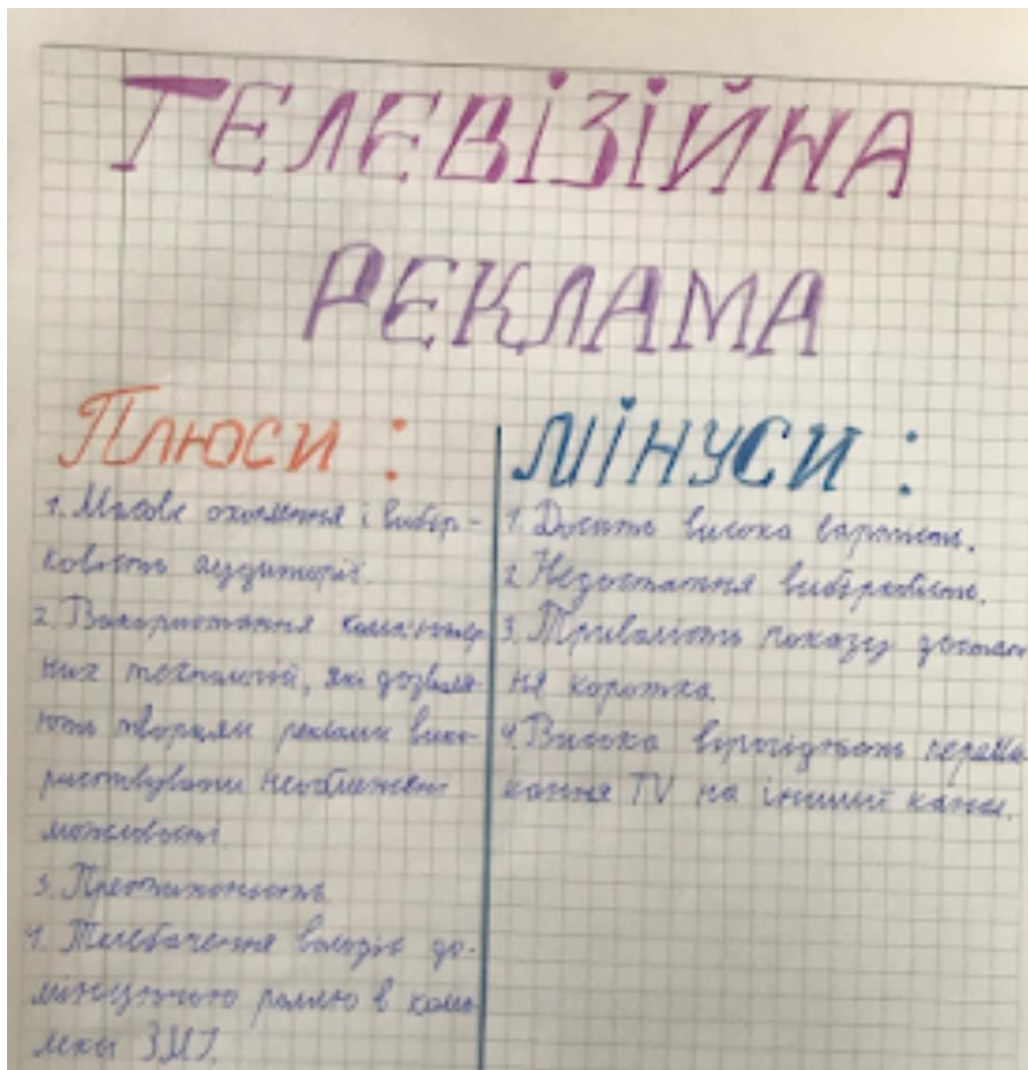 ТЕЛЕВІЗІЙНА
РЕКЛАМА
Плюси :
1. Масове охоплення і вибір-
ковість аудиторії.
2. Використання комп'ютер
них технологій, які дозволя-
ють творцям реклами вико-
ристовувати необмежені
можливості.
3. Престижність.
4. Телебачення володіє до-
мінуючою роллю в комп
лексі ЗМІ.
Мінуси :
1. Досить висока вартість.
2. Недостатня вибірковість.
3. Тривалість показу
не коротка.
4. Висока вірогідність переми
кання TV на інший канал.